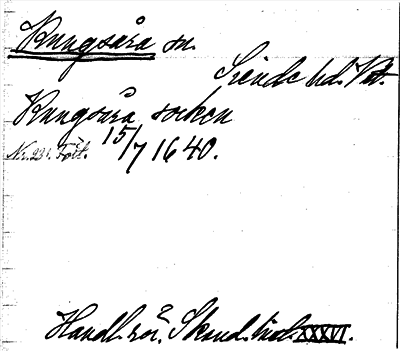 Kungsåra sn.
Siende hd. Vtm.
Kungsåra socken
Nr. 221. Fört. 15/7 1640.
Handl. rör. Skand. hist. XXXVI.